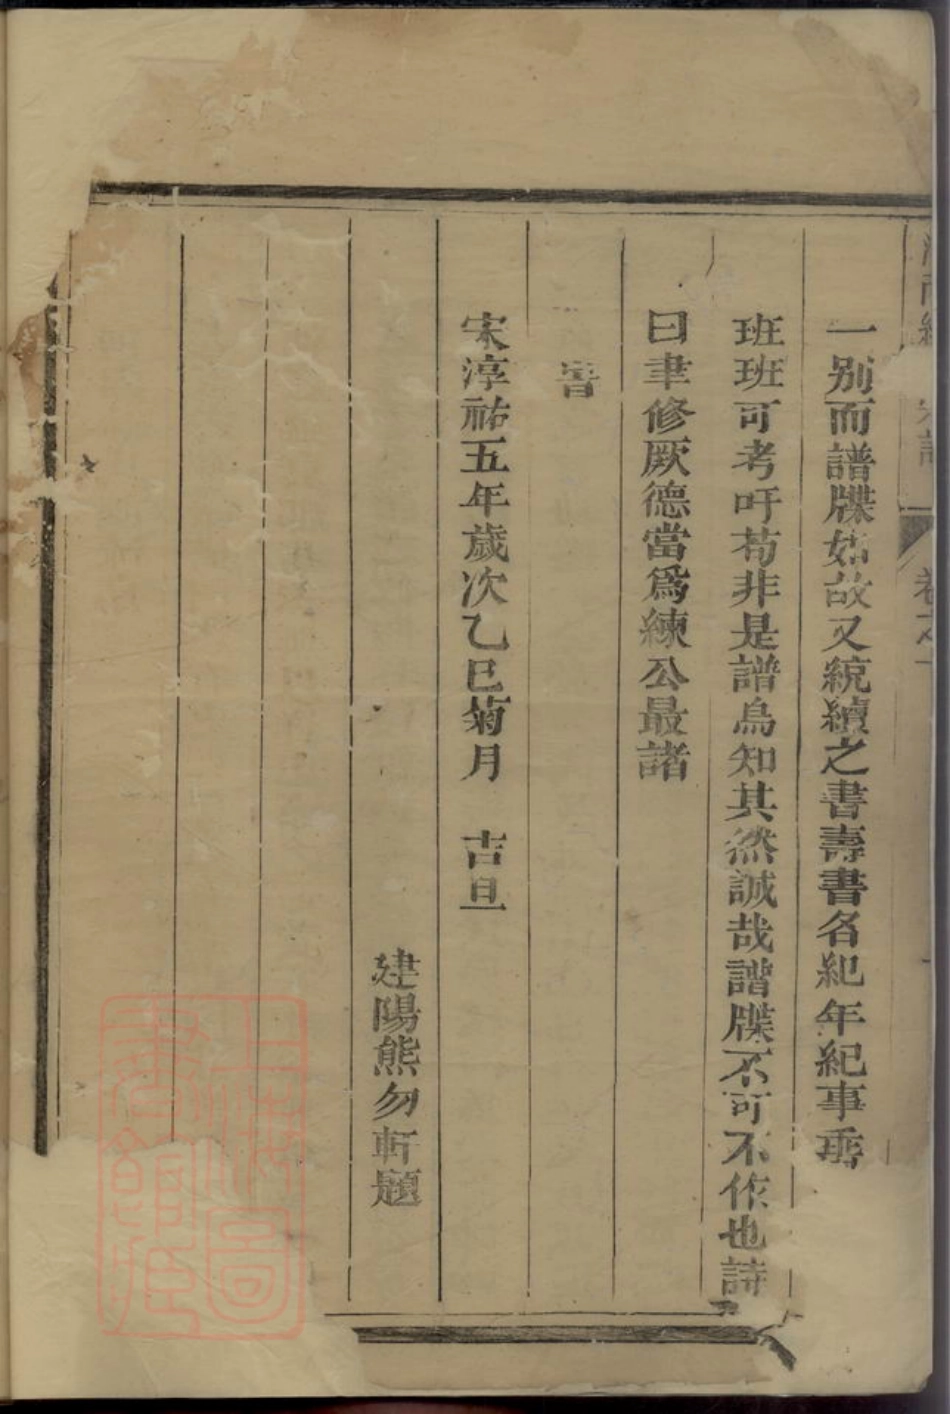 卷之一
一别而譜牒如故又統續之書壽書名紀年紀事班
班班可考吁苟非是譜烏知其然誠哉譜牒不可不作也詩
曰聿修厥德當爲練公最諸
宋淳祐五年歲次乙巳菊月 吉旦
建陽熊勿軒題
上海圖書館藏